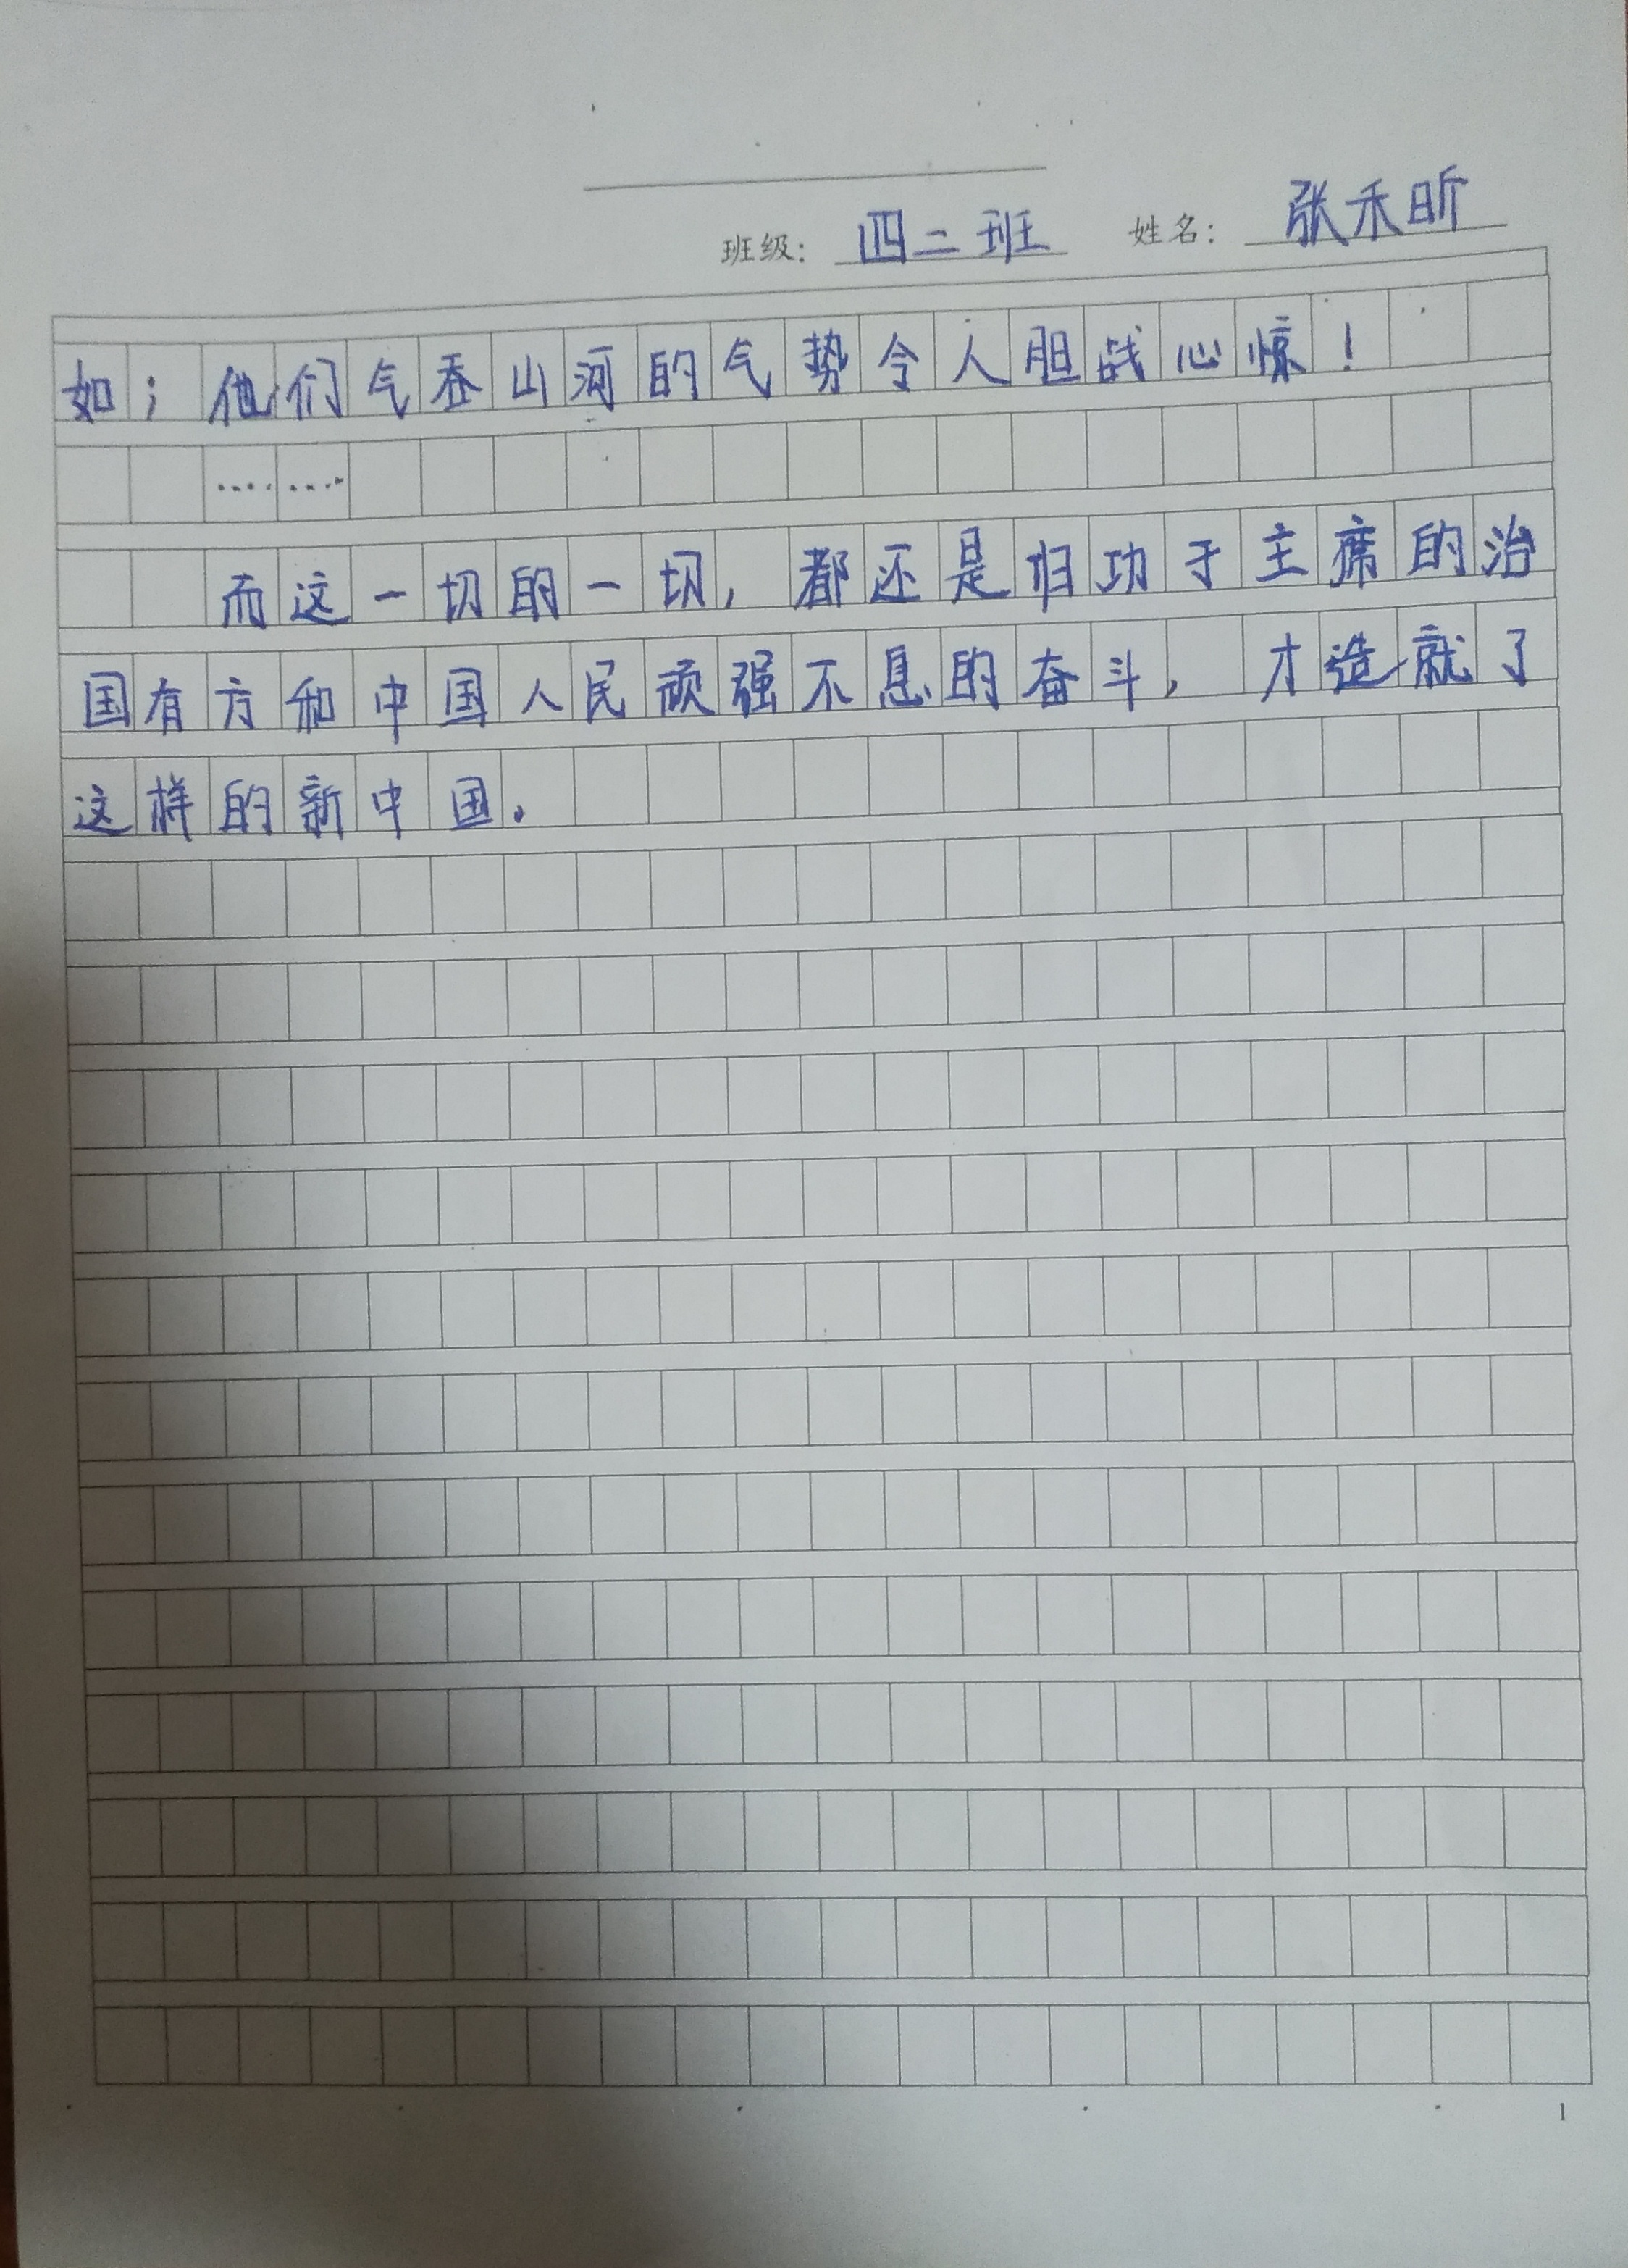 班级：四二班 姓名：张禾昕
如；他们气吞山河的气势令人胆战心惊！
……
而这一切的一切，都还是归功于主席的治
国有方和中国人民顽强不息的奋斗，才造就了
这样的新中国。
1